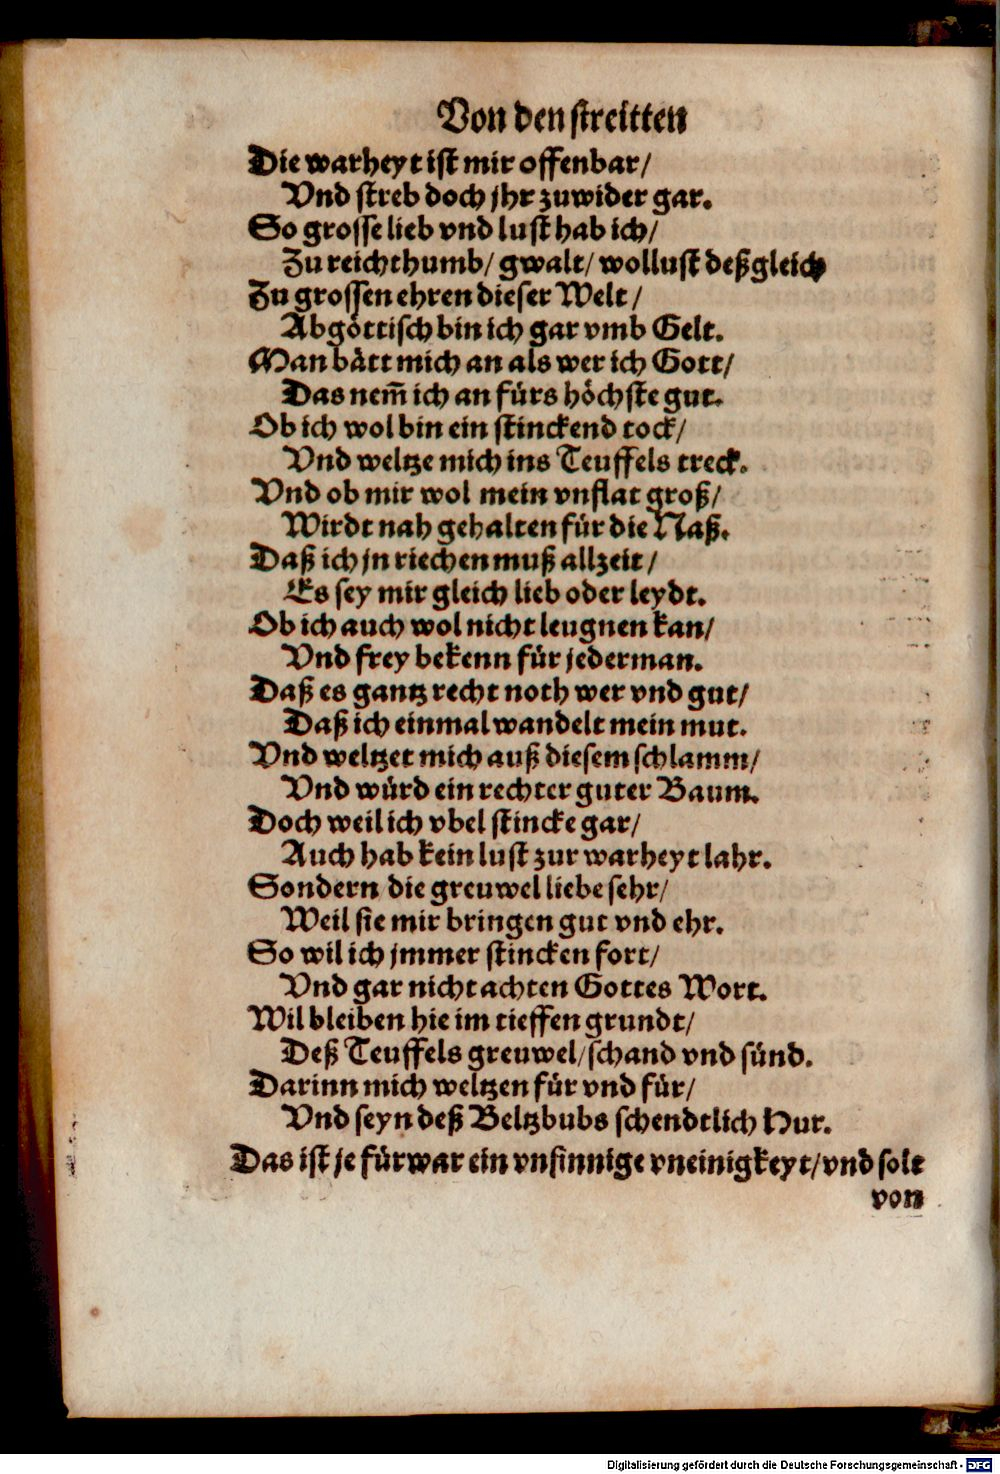 Von den streitten
Die warheyt ist mir offenbar/
Vnd streb doch jhr zuwider gar.
So grosse lieb vnd lust hab ich/
Zu reichthumb/ gwalt/ wollust deßgleich
Zu grossen ehren dieser Welt/
Abgöttisch bin ich gar vmb Gelt.
Man bätt mich an als wer ich Gott/
Das nem̃ ich an fürs höchste gut.
Ob ich wol bin ein stinckend tock/
Vnd weltze mich ins Teuffels treck.
Vnd ob mir wol mein vnflat groß/
Wirdt nah gehalten für die Naß.
Daß ich jn riechen muß allzeit/
Es sey mir gleich lieb oder leydt.
Ob ich auch wol nicht leugnen kan/
Vnd frey bekenn für jederman.
Daß es gantz recht noth wer vnd gut/
Daß ich einmal wandelt mein mut.
Vnd weltzet mich auß diesem schlamm/
Vnd würd ein rechter guter Baum.
Doch weil ich vbel stincke gar/
Auch hab kein lust zur warheyt lahr.
Sondern die greuwel liebe sehr/
Weil sie mir bringen gut vnd ehr.
So wil ich jmmer stincken fort/
Vnd gar nicht achten Gottes Wort.
Wil bleiben hie im tieffen grundt/
Deß Teuffels greuwel/ schand vnd sünd.
Darinn mich weltzen für vnd für/
Vnd seyn deß Beltzbubs schendtlich Hur.
Das ist je fürwar ein vnsinnige vneinigkeyt/ vnd solt
von
Digitalisierung gefördert durch die Deutsche Forschungsgemeinschaft - DFG